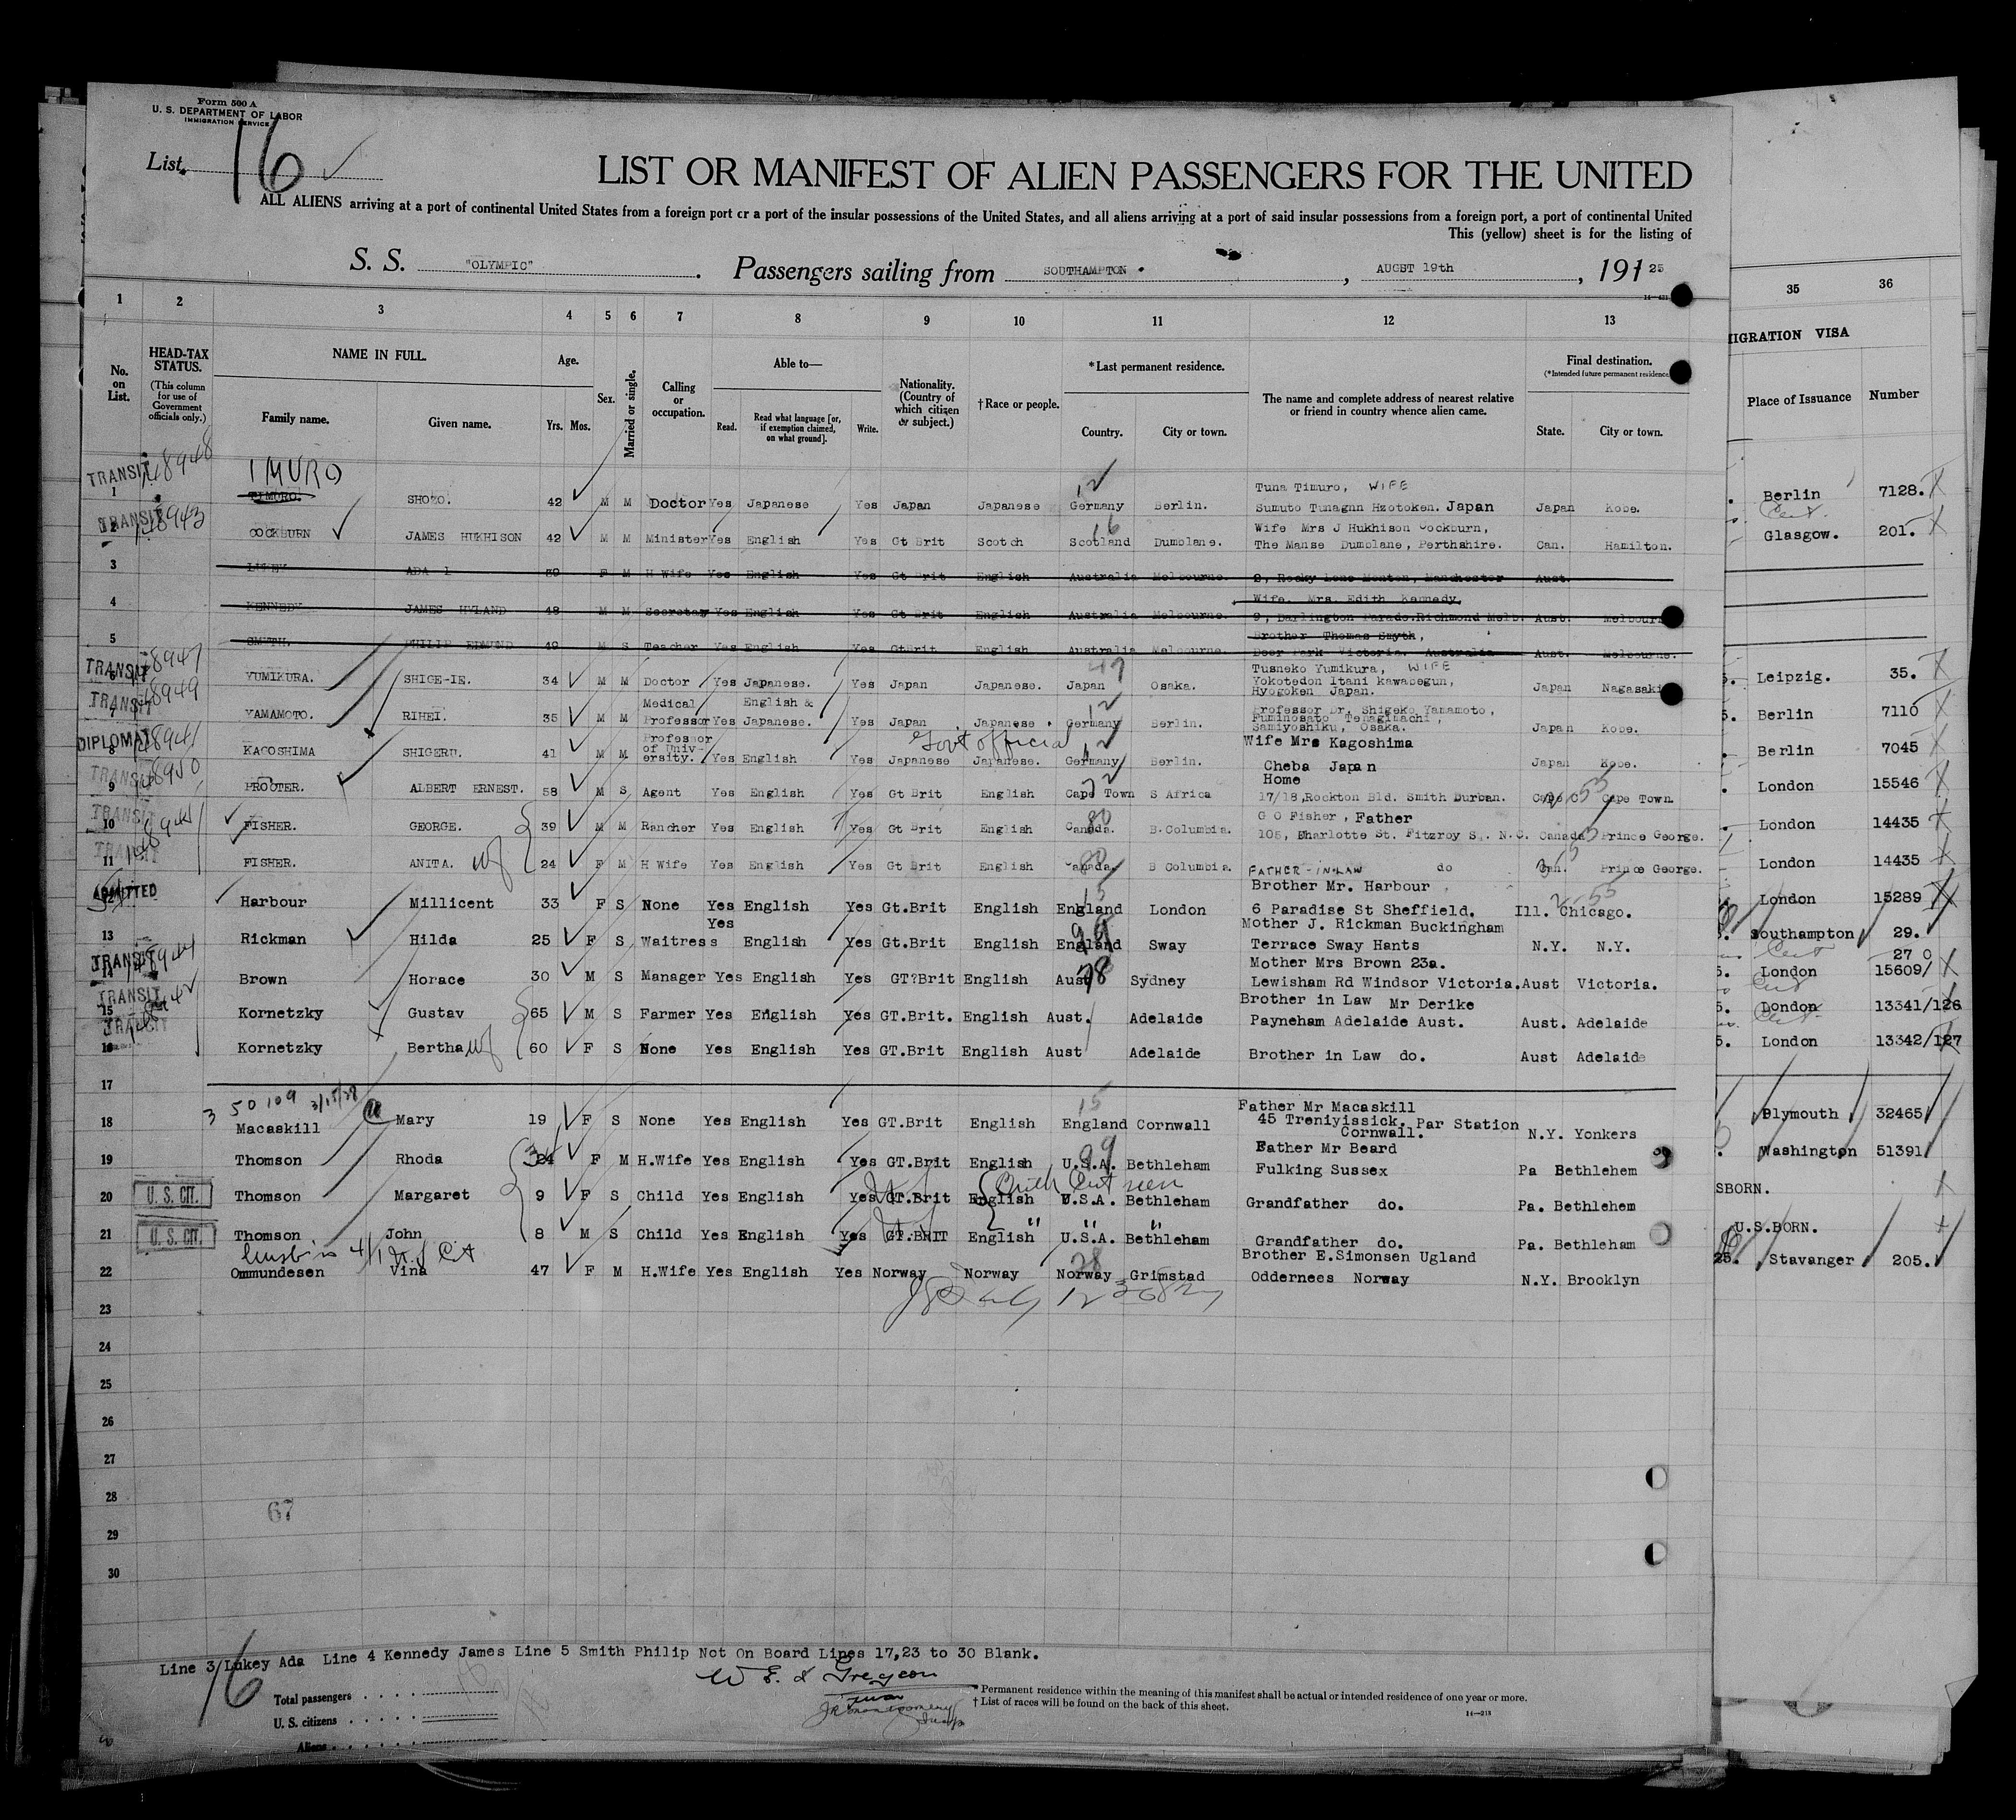 Form 500 A
U. S. DEPARTMENT OF LABOR
IMMIGRATION SERVICE
List 16
LIST OR MANIFEST OF ALIEN PASSENGERS FOR THE UNITED
ALL ALIENS arriving at a port of continental United States from a foreign port or a port of the insular possessions of the United States, and all aliens arriving at a port of said insular possessions from a foreign port, a port of continental United
This (yellow) sheet is for the listing of
S. S. "OLYMPIC" . Passengers sailing from SOUTHAMPTON , AUGST 19th , 191 25
1 2 3 4 5 6 7 8 9 10 11 12 13 35 36
No. on List. HEAD-TAX STATUS. (This column for use of Government officials only.) NAME IN FULL. Family name. Given name. Age. Yrs. Mos. Sex. Married or single. Calling or occupation. Able to— Read. Read what language [or, if exemption claimed, on what ground]. Write. Nationality. (Country of which citizen or subject.) †Race or people. *Last permanent residence. Country. City or town. The name and complete address of nearest relative or friend in country whence alien came. Final destination. (*Intended future permanent residence) State. City or town. MIGRATION VISA Place of Issuance Number
TRANSIT 1 IMURO TIMURO. SHOZO. 42 M M Doctor Yes Japanese Yes Japan Japanese Germany Berlin. Tuna Timuro, WIFE Sumuto Tunagnn Hzotoken. Japan Japan Kobe. Berlin 7128.
TRANSIT 2 COCKBURN JAMES HUKHISON 42 M M Minister Yes English Yes Gt Brit Scotch Scotland Dumblane. Wife Mrs J Hukhison Cockburn, The Manse Dumblane, Perthshire. Can. Hamilton. Glasgow. 201.
3 LUKEY ADA L 39 F M H Wife Yes English Yes Gt Brit English Australia Melbourne. 2, Rocky Lane Monton, Manchester Aust.
4 KENNEDY JAMES HYLAND 48 M M Secretary Yes English Yes Gt Brit English Australia Melbourne. Wife. Mrs. Edith Kennedy, 9, Darlington Parade. Richmond Melb. Aust. Melbourne
5 SMYTH. PHILIP EDMUND 49 M S Teacher Yes English Yes Gt Brit English Australia Melbourne. Brother Thomas Smyth, Deer Park Victoria. Australia Aust. Melbourne.
TRANSIT 6 YUMIKURA. SHIGE-IE. 34 M M Doctor Yes Japanese. Yes Japan Japanese. Japan Osaka. Tusneko Yumikura, WIFE Yokotedon Itani kawabegun, Hyogoken Japan. Japan Nagasaki Leipzig. 35.
TRANSIT 7 YAMAMOTO. RIHEI. 35 M M Medical Professor Yes English & Japanese. Yes Japan Japanese Germany Berlin. Professor Dr. Shigeko Yamamoto, Fuminosato Tenagimachi, Samiyoshiku, Osaka. Japan Kobe. Berlin 7110
DIPLOMAT 8 KAGOSHIMA SHIGERU. 41 M M Professor of Univ-ersity. Yes English Yes Japanese Japanese. Govt official Germany Berlin. Wife Mrs Kagoshima Cheba Japan Japan Kobe. Berlin 7045
TRANSIT 9 PROCTER. ALBERT ERNEST. 58 M S Agent Yes English Yes Gt Brit English Cape Town S Africa Home 17/18, Rockton Bld. Smith Durban. Cape C Cape Town. London 15546
TRANSIT 10 FISHER. GEORGE. 39 M M Rancher Yes English Yes Gt Brit English Canada. B.Columbia. G O Fisher, Father 105, Charlotte St. Fitzroy S. N.C. Canada Prince George. London 14435
TRANSIT 11 FISHER. ANITA. wf 24 F M H Wife Yes English Yes Gt Brit English Canada. B Columbia. FATHER-IN-LAW do Can. Prince George. London 14435
ADMITTED 12 Harbour Millicent 33 F S None Yes English Yes Gt.Brit English England London Brother Mr. Harbour 6 Paradise St Sheffield. Ill. Chicago. London 15289
13 Rickman Hilda 25 F S Waitress Yes English Yes Gt.Brit English England Sway Mother J. Rickman Buckingham Terrace Sway Hants N.Y. N.Y. Southampton 29.
TRANSIT 14 Brown Horace 30 M S Manager Yes English Yes GT?Brit English Aust Sydney Mother Mrs Brown 23a. Lewisham Rd Windsor Victoria. Aust Victoria. London 15609/
TRANSIT 15 Kornetzky Gustav 65 M S Farmer Yes English Yes GT.Brit. English Aust. Adelaide Brother in Law Mr Derike Payneham Adelaide Aust. Aust. Adelaide London 13341/126
TRANSIT 16 Kornetzky Bertha wf 60 F S None Yes English Yes GT.Brit English Aust Adelaide Brother in Law do. Aust Adelaide London 13342/127
17
3 50109 3/15/28
18 Macaskill Mary 19 F S None Yes English Yes GT.Brit English England Cornwall Father Mr Macaskill 45 Treniyissick. Par Station Cornwall. N.Y. Yonkers Plymouth 32465
19 Thomson Rhoda 34 F M H.Wife Yes English Yes GT.Brit English U.S.A. Bethleham Father Mr Beard Fulking Sussex Pa Bethlehem Washington 51391
20 U.S. CIT. Thomson Margaret 9 F S Child Yes English Yes GT.Brit English U.S.A. Bethleham Grandfather do. Pa. Bethlehem SBORN.
21 U.S. CIT. Thomson John 8 M S Child Yes English Yes GT.BRIT English " U.S.A. " Bethleham " Grandfather do. Pa. Bethleham U.S.BORN.
22 Ommundesen Vina 47 F M H.Wife Yes English Yes Norway Norway Norway Grimstad Brother E.Simonsen Ugland Oddernees Norway N.Y. Brooklyn 25. Stavanger 205.
23
24
25
26
27
28
67
29
30
Line 3 Lukey Ada Line 4 Kennedy James Line 5 Smith Philip Not On Board Lines 17,23 to 30 Blank.
16
Total passengers
U. S. citizens
Aliens
* Permanent residence within the meaning of this manifest shall be actual or intended residence of one year or more.
† List of races will be found on the back of this sheet.